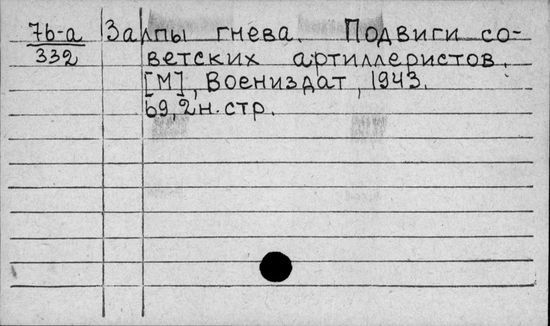 7б-а Залпы гнева. Подвиги со-
332 ветских артиллеристов.
[М], Воениздат, 1943.
69, 2 н. стр.